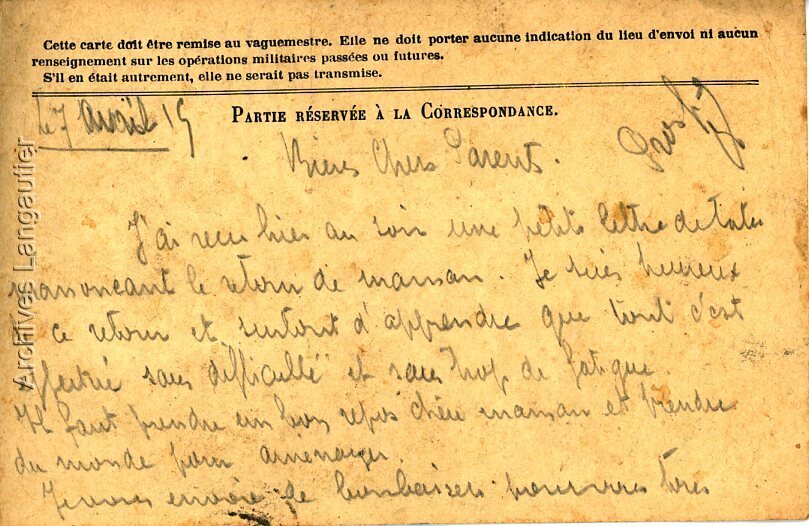 Cette carte doit être remise au vaguemestre. Elle ne doit porter aucune indication du lieu d'envoi ni aucun
renseignement sur les opérations militaires passées ou futures.
S'il en était autrement, elle ne serait pas transmise.
Le 7 Avril 15
PARTIE RÉSERVÉE À LA CORRESPONDANCE.
Bien Chers Parent.
J'ai recu hier au soir une petite lettre de
m'anoncant le retour de maman. Je suis heureux
ce retour et surtout d'apprendre que tout c'est
effectué sans difficulté et sans trop de fatigue.
Il faut prendre un bon repos chère maman et prendre
du monde pour amenager.
Je vous envoie de bons baisers pour vous tous
Archives Langautier